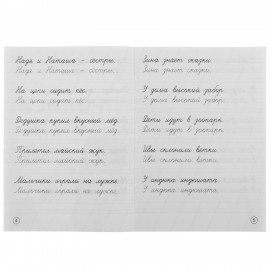 Надя и Наташа - сёстры.
Надя и Наташа - сёстры.
На цепи сидит пёс.
На цепи сидит пёс.
Дедушка купил вкусный мёд.
Дедушка купил вкусный мёд.
Прилетел майский жук.
Прилетел майский жук.
Мальчики играли на лужке.
Мальчики играли на лужке.
4
Зина знает сказки.
Зина знает сказки.
У дома высокий забор.
У дома высокий забор.
Дети идут в зоопарк.
Дети идут в зоопарк.
Ивы склонили ветки.
Ивы склонили ветки.
У индюка индюшата.
У индюка индюшата.
5